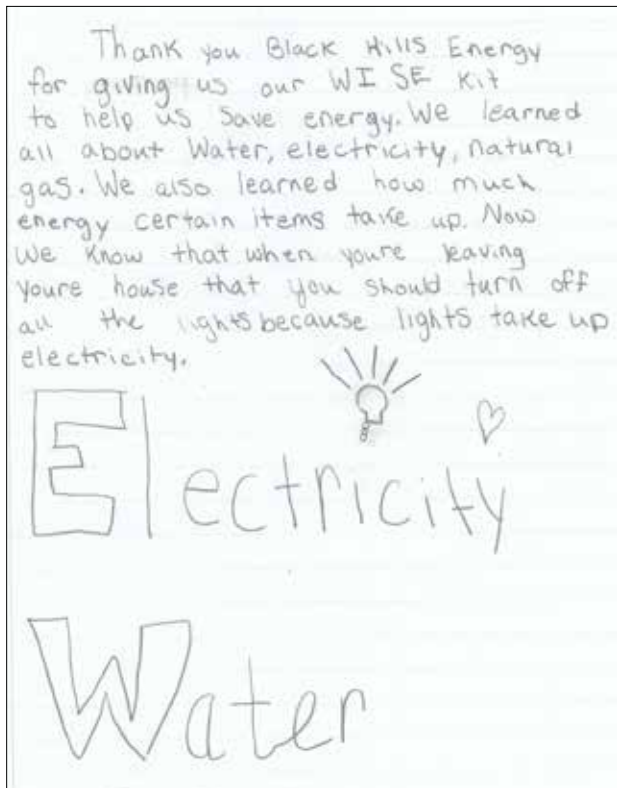 Thank you Black Hills Energy
for giving us our WISE Kit
to help us save energy. We learned
all about Water, electricity, natural
gas. We also learned how much
energy certain items take up. Now
We know that when youre leaving
youre house that you should turn off
all the lights because lights take up
electricity.
Electricity
Water